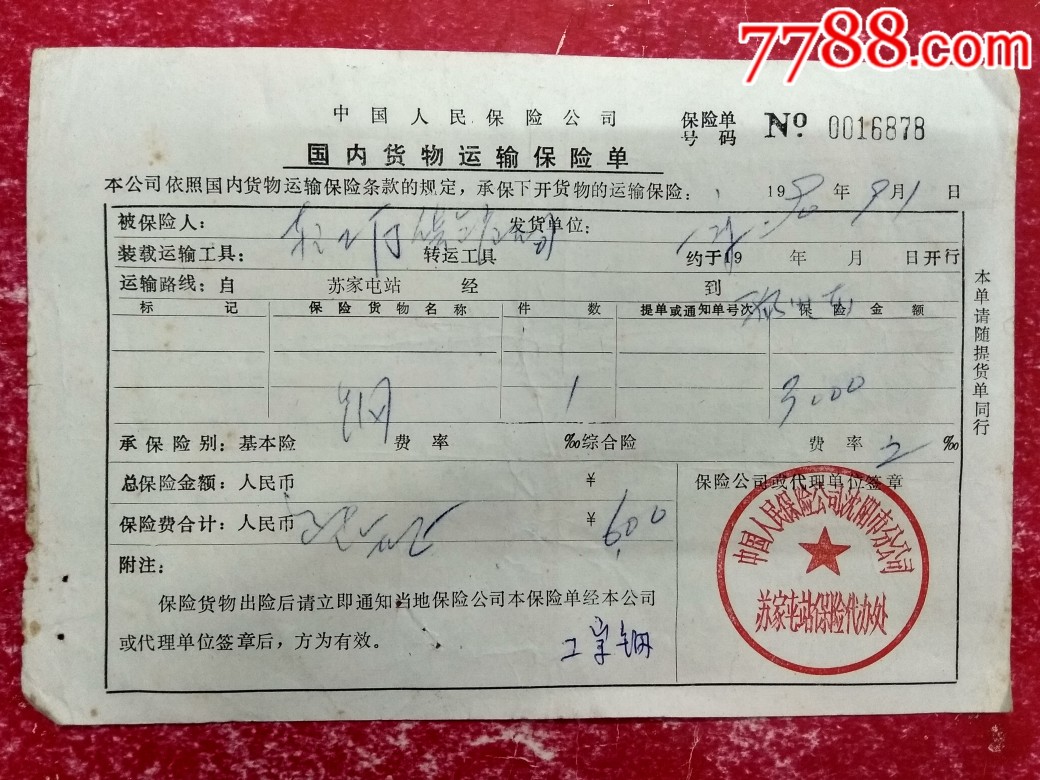 7788.com
中国人民保险公司
保险单号码 № 0016878
国内货物运输保险单
本公司依照国内货物运输保险条款的规定，承保下开货物的运输保险： 19 年 9月1日
被保险人： 发货单位：
装载运输工具： 转运工具 约于19 年 月 日开行
运输路线：自 苏家屯站 经 到
标 记 保险货物名称 件 数 提单或通知单号次 保险金额
钢 1 3000
承保险别：基本险 费率 ‰综合险 费率 2 ‰
总保险金额：人民币 ¥
保险费合计：人民币 ¥ 6.00
保险公司或代理单位签章
附注：
保险货物出险后请立即通知当地保险公司本保险单经本公司
或代理单位签章后，方为有效。
工字钢
本单请随提货单同行
中国人民保险公司沈阳市分公司
苏家屯站保险代办处